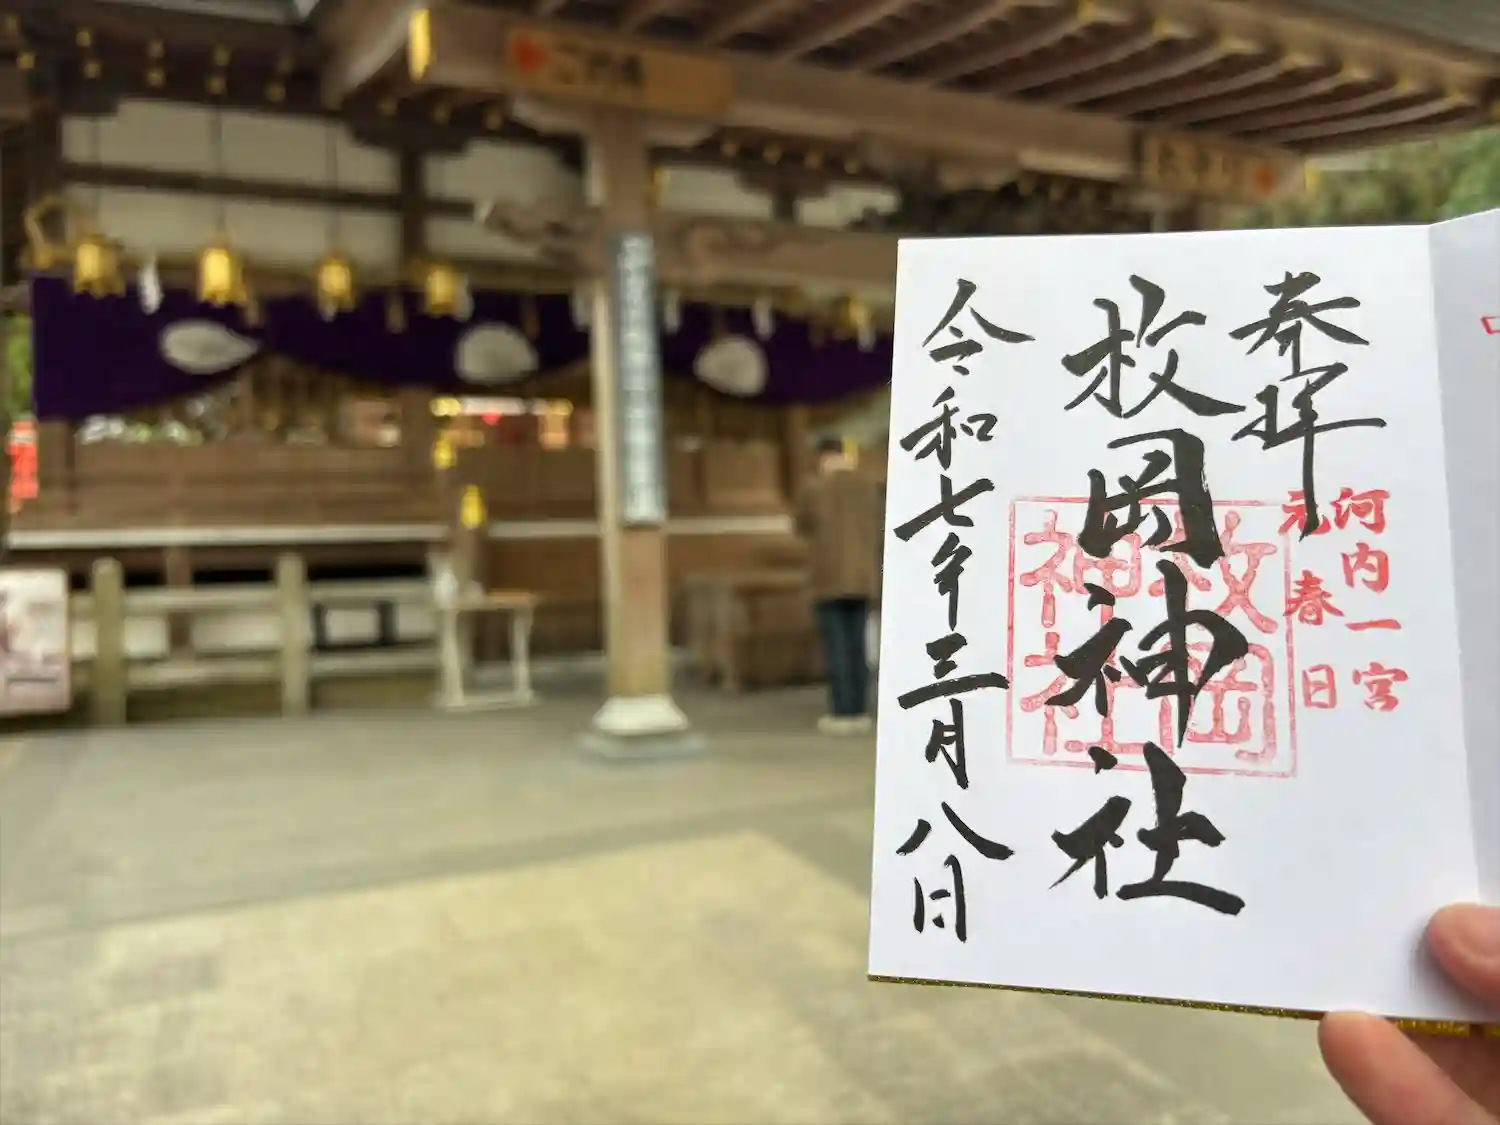 奉拝
河内一宮
元春日
枚岡神社
枚岡
神社
令和七年三月八日